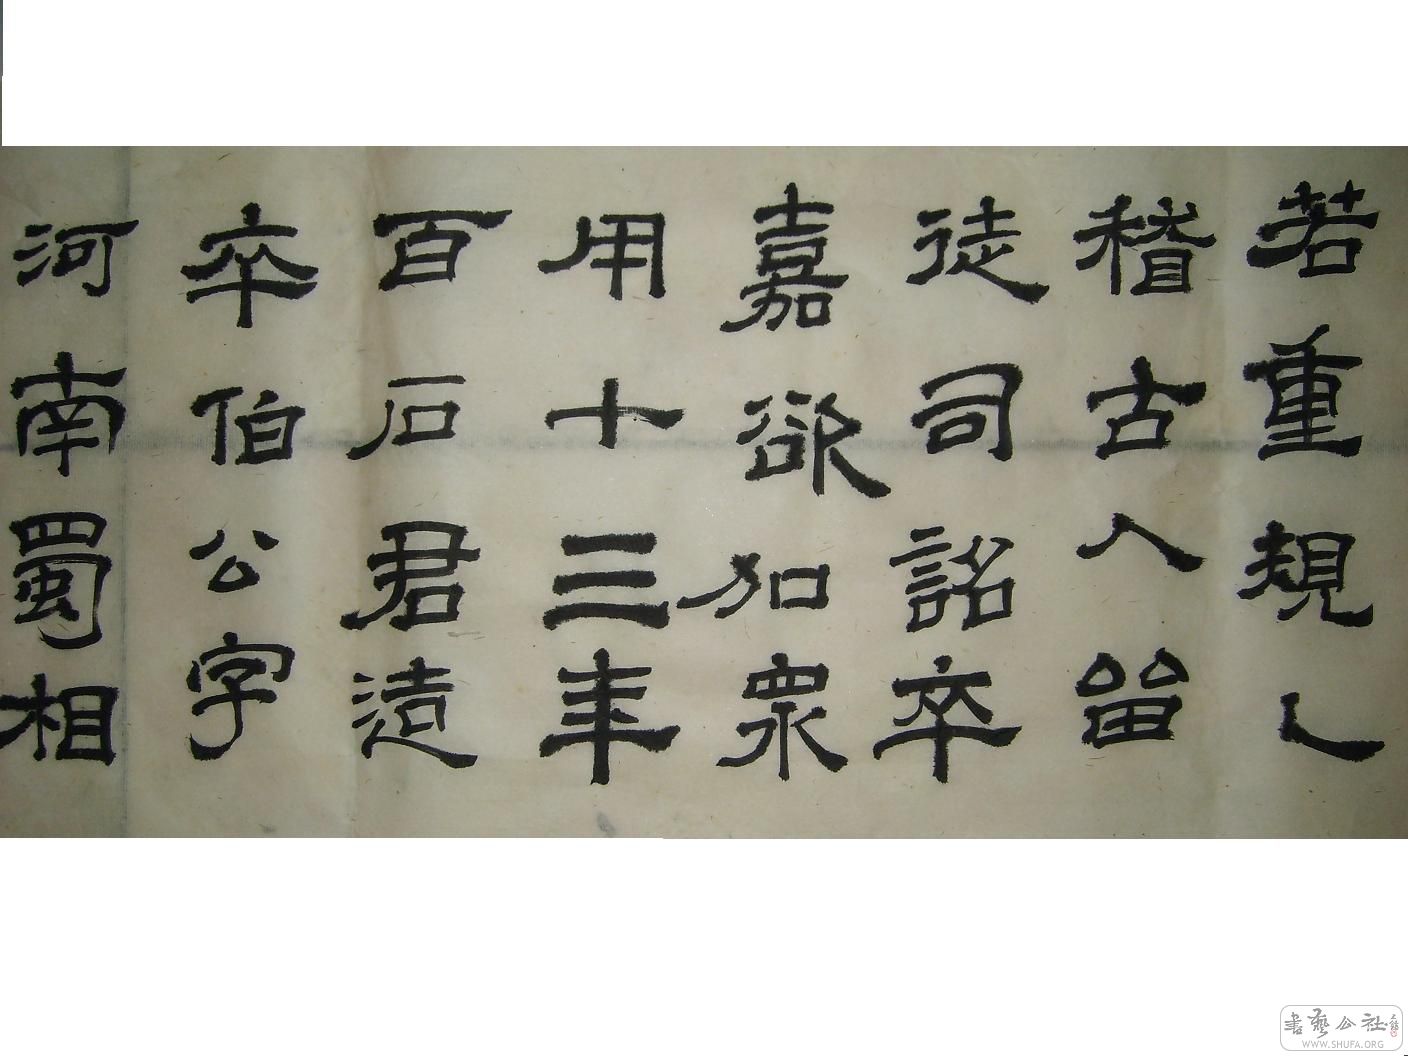 若重規乚
稽古入㽞
徒司詺卒
嘉欲加眾
用十三年
百石君造
卒伯公字
河南蜀相
書藝公社
WWW.SHUFA.ORG